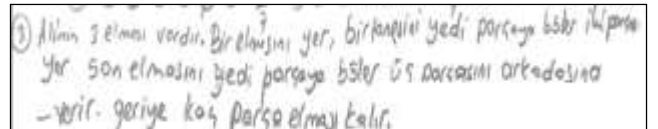 ③ Alinin 3 elması vardır. Bir elmasını yer, bir tanesini yedi parçaya böler iki parça
yer son elmasını yedi parçaya böler üç parçasını arkadaşına
-verir. geriye kaç parça elması kalır.